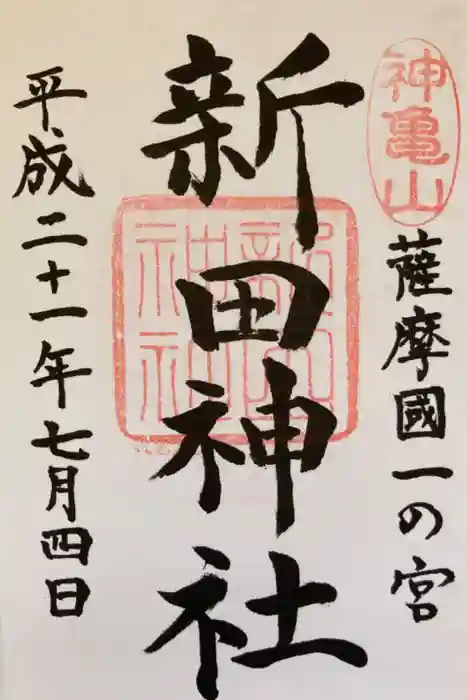 神亀山
薩摩國一の宮
新田神社
新田神社
平成二十一年七月四日